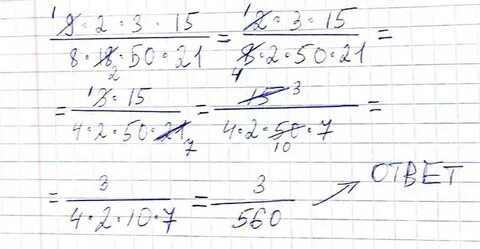 1 9·2·3·15 / 8·18 2·50·21 = 1 2·3·15 / 8 4·2·50·21 =
= 1 3·15 / 4·2·50·21 7 = 15 3 / 4·2·50 10·7 =
= 3 / 4·2·10·7 = 3 / 560 → ОТВЕТ